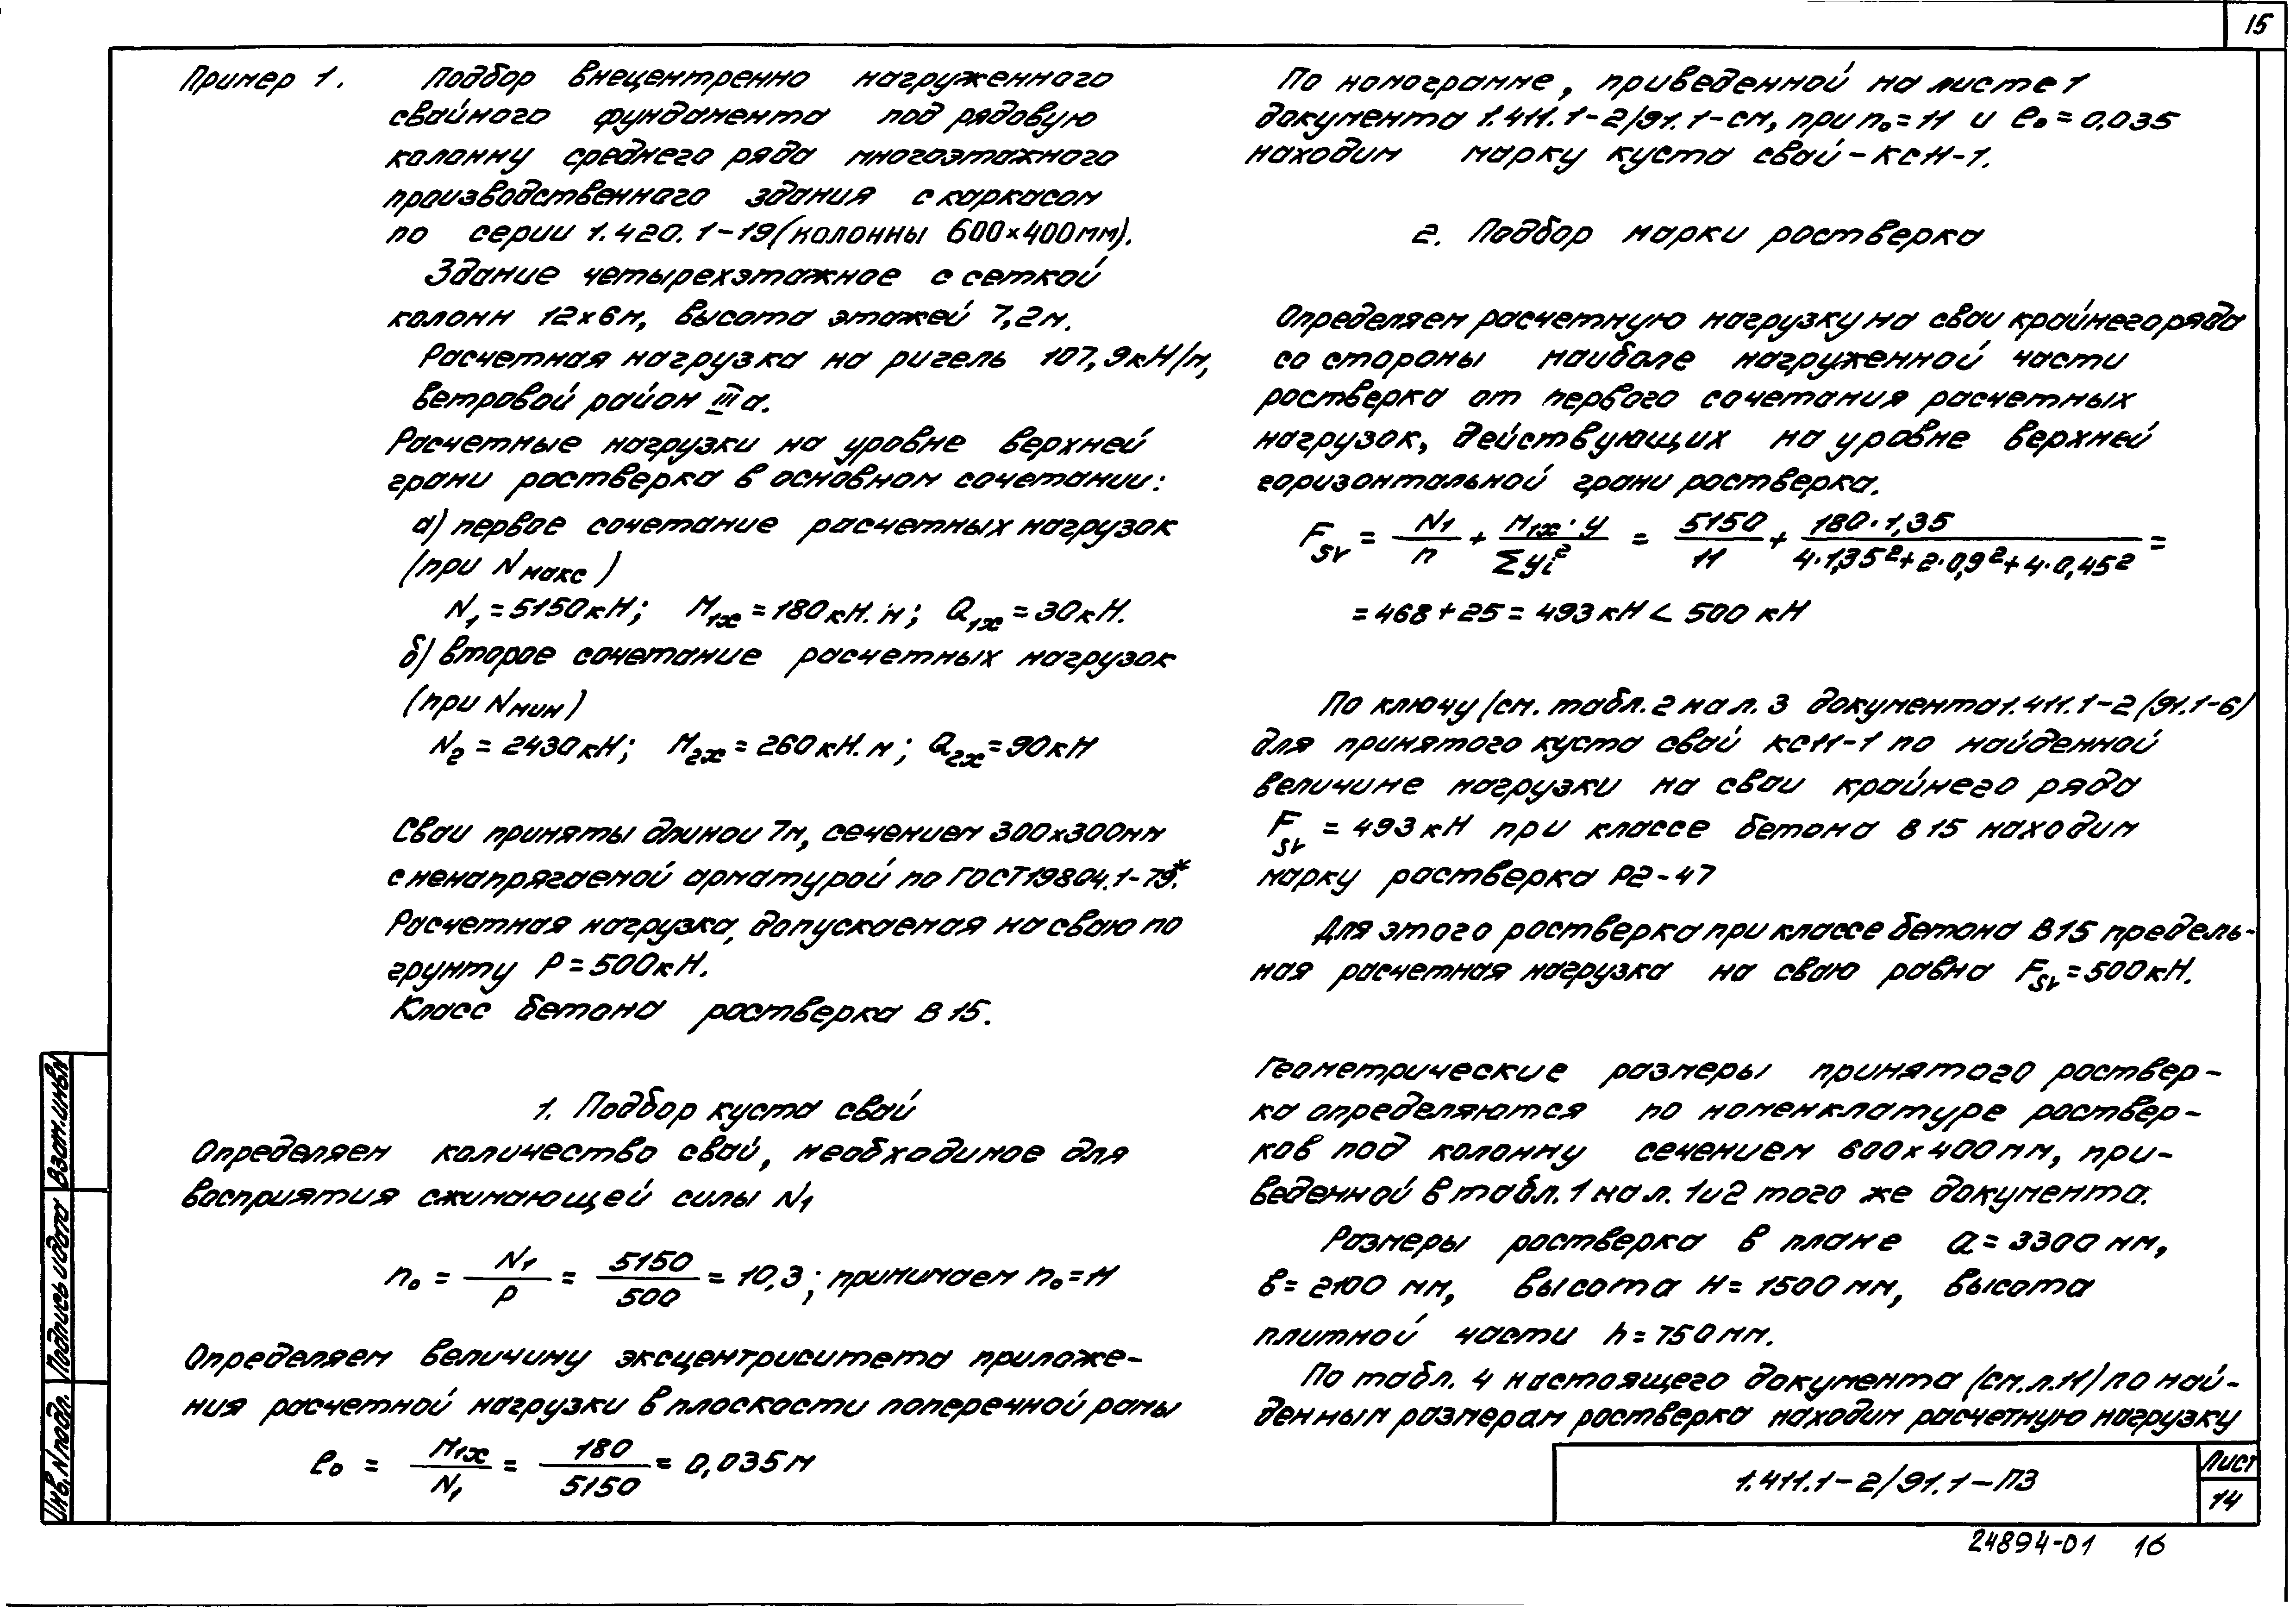 15
Пример 1. Подбор внецентренно нагруженного
свайного фундамента под рядовую
колонну среднего ряда многоэтажного
производственного здания с каркасом
по серии 1.420.1-19 (колонны 600×400мм).
Здание четырехэтажное с сеткой
колонн 12×6м, высота этажей 7,2м.
Расчетная нагрузка на ригель 107,9кН/м,
ветровой район IIIа.
Расчетные нагрузки на уровне верхней
грани ростверка в основном сочетании:
а) первое сочетание расчетных нагрузок
(при Nмакс)
N₁=5150кН; M₁ₓ=180кН.м; Q₁ₓ=30кН.
б) второе сочетание расчетных нагрузок
(при Nмин)
N₂=2430кН; M₂ₓ=260кН.м; Q₂ₓ=90кН
Сваи приняты длиной 7м, сечением 300×300мм
с ненапрягаемой арматурой по ГОСТ19804.1-79*.
Расчетная нагрузка, допускаемая на сваю по
грунту P=500кН.
Класс бетона ростверка В15.
1. Подбор куста свай
Определяем количество свай, необходимое для
восприятия сжимающей силы N₁
n₀ = N₁/P = 5150/500 = 10,3; принимаем n₀=11
Определяем величину эксцентриситета приложе-
ния расчетной нагрузки в плоскости поперечной рамы
e₀ = M₁ₓ/N₁ = 180/5150 = 0,035м
По номограмме, приведенной на листе 1
документа 1.411.1-2/91.1-см, при n₀=11 и e₀=0,035
находим марку куста свай-КС11-1.
2. Подбор марки ростверка
Определяем расчетную нагрузку на сваи крайнего ряда
со стороны наиболе нагруженной части
ростверка от первого сочетания расчетных
нагрузок, действующих на уровне верхней
горизонтальной грани ростверка.
Fsr = N₁/n + M₁ₓ·y/Σyᵢ² = 5150/11 + 180·1,35/4·1,35²+2·0,9²+4·0,45² =
=468+25=493кН<500кН
По ключу (см. табл.2 на л.3 документа 1.411.1-2/91.1-6)
для принятого куста свай КС11-1 по найденной
величине нагрузки на сваи крайнего ряда
Fsr = 493кН при классе бетона В15 находим
марку ростверка Р2-47
Для этого ростверка при классе бетона В15 предель-
ная расчетная нагрузка на сваю равна Fsr=500кН.
Геометрические размеры принятого роствер-
ка определяются по номенклатуре роствер-
ков под колонну сечением 600×400мм, при-
веденной в табл.1 на л.1и2 того же документа.
Размеры ростверка в плане a=3300 мм,
в=2100 мм, высота H=1500мм, высота
плитной части h=750мм.
По табл. 4 настоящего документа (см.л.11) по най-
денным размерам ростверка находим расчетную нагрузку
1.411.1-2/91.1-ПЗ
Лист
14
24894-01 16
Инв.Nподл. Подпись и дата Взам.инв.N